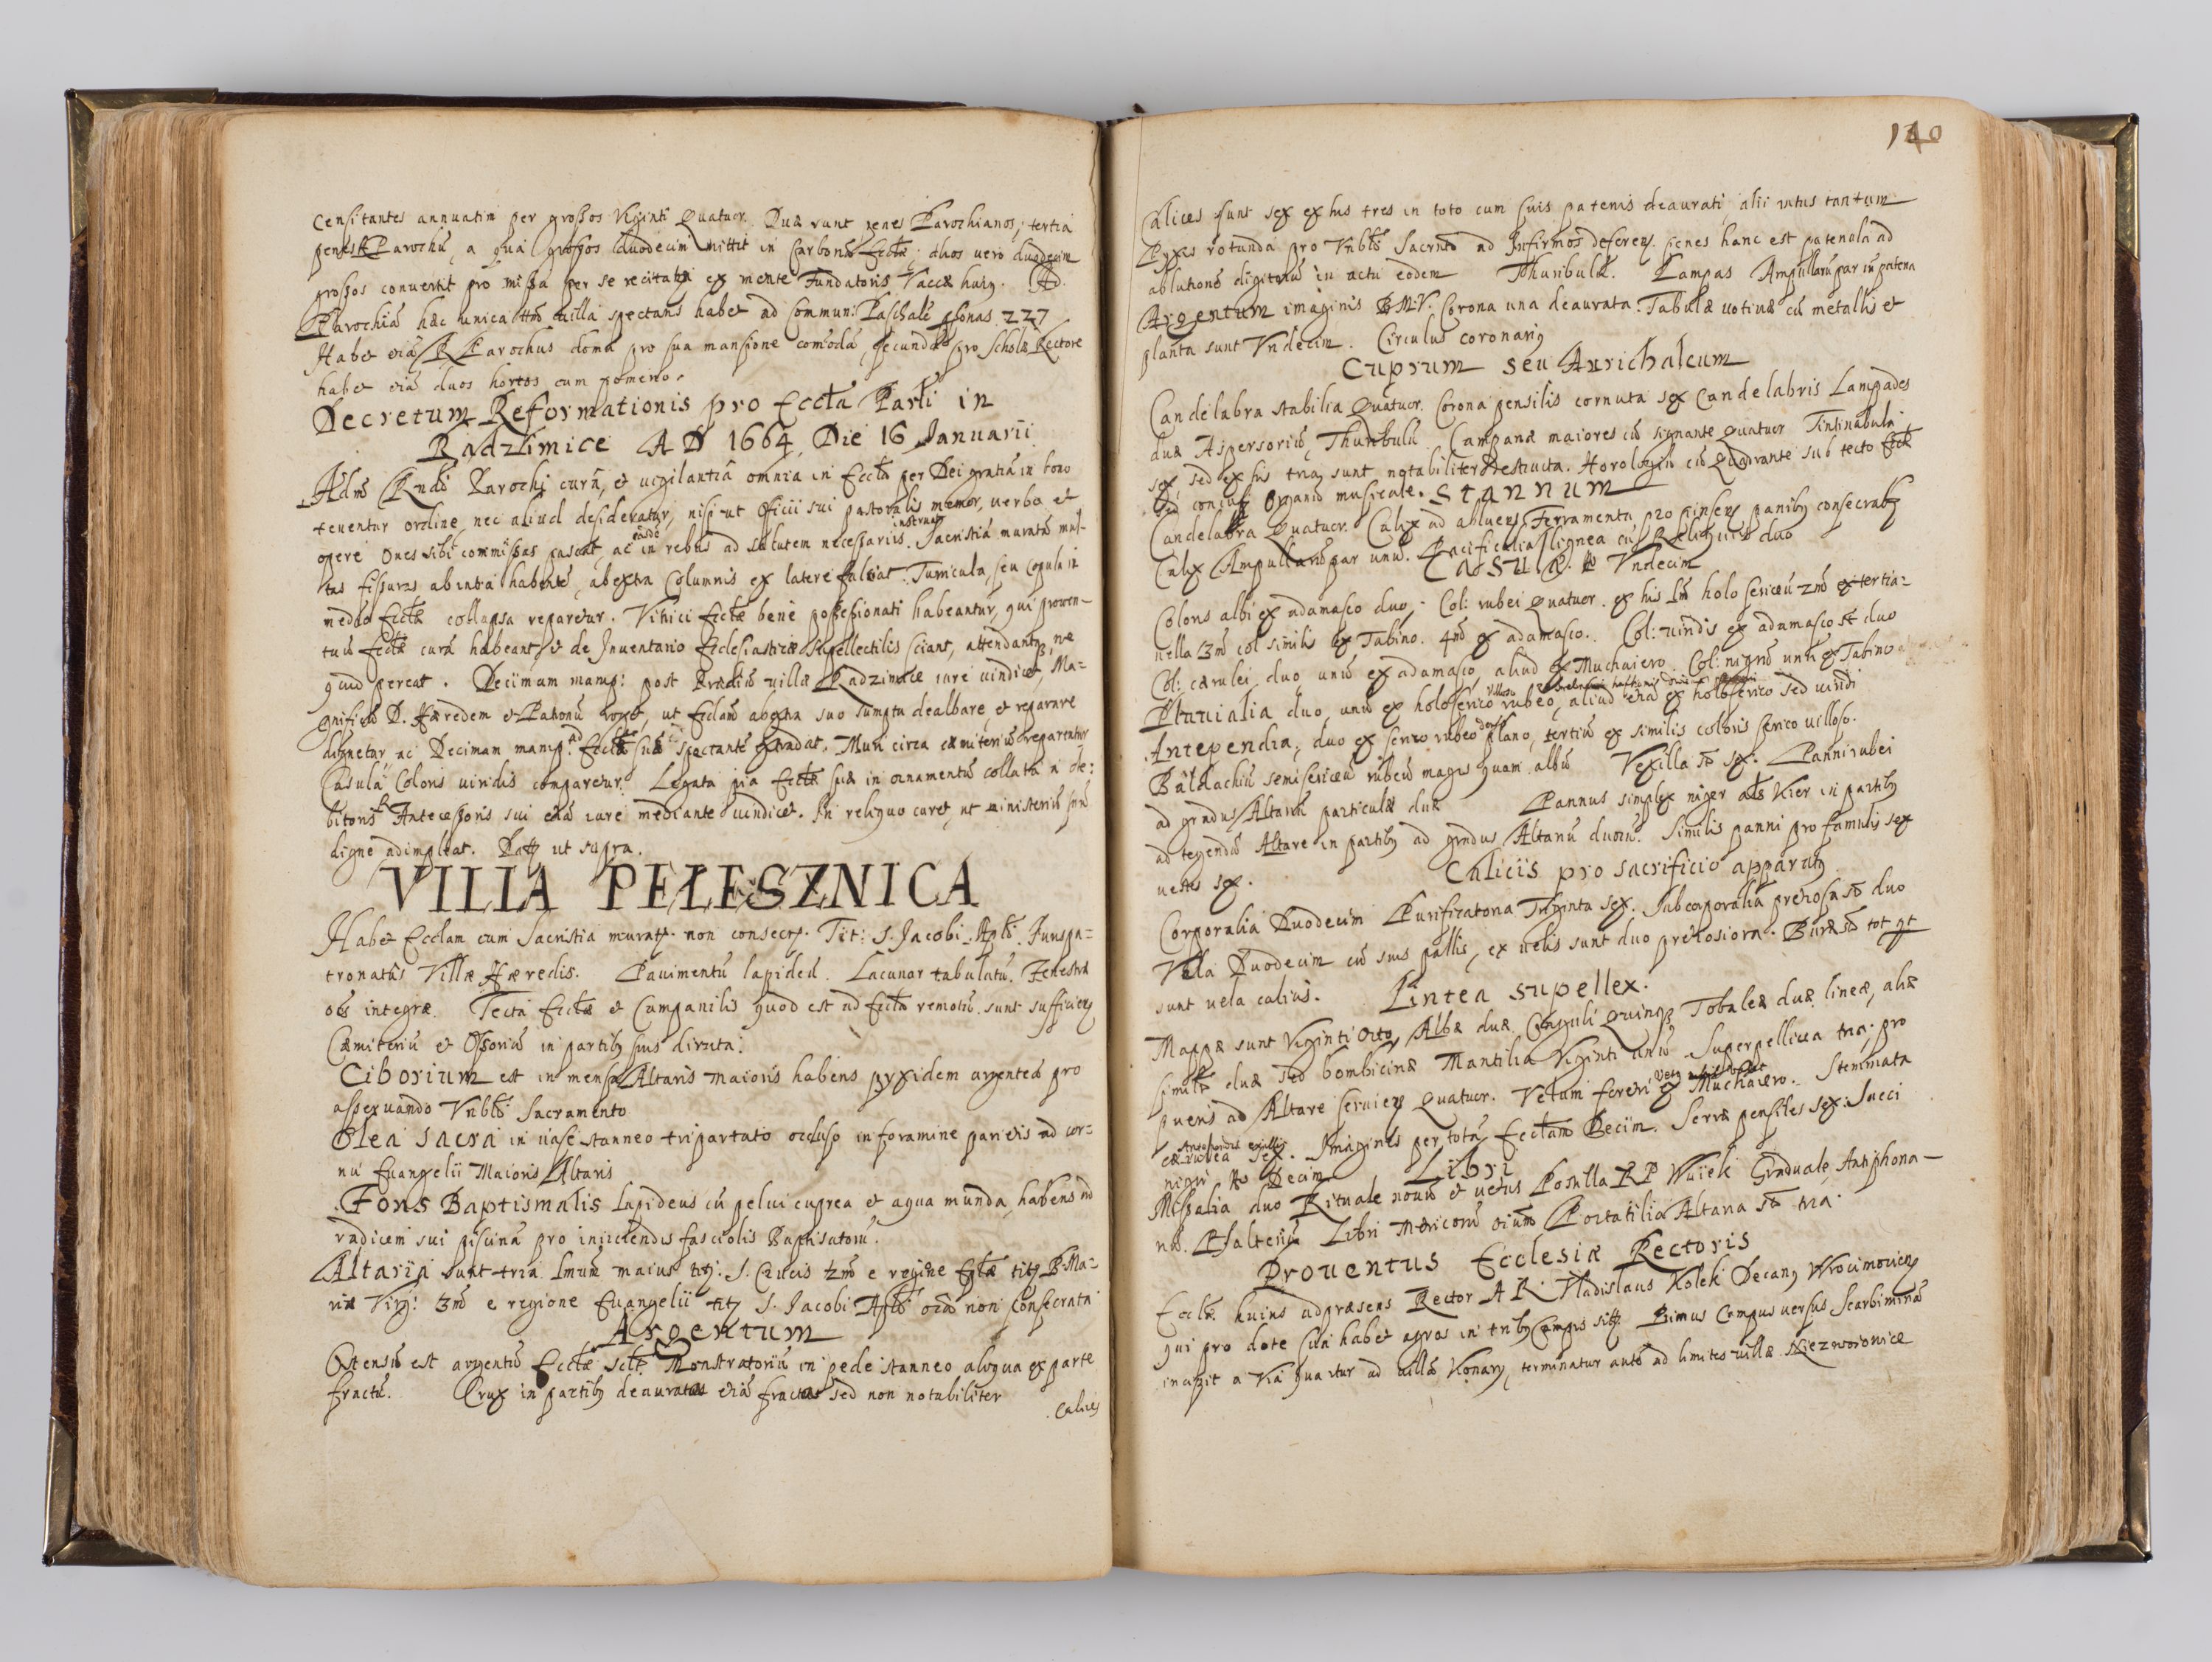 censitantes annuatim per grossos Viginti Quatuor. Duæ sunt penes Parochianos, tertia
penes R Parochũ, a qua grossos duodecim mittit in Carbonã Ecclæ; alios vero duodecim
grossos convertit pro missa per se recitata ex mente Fundatoris Vaccæ huiꝰ. Ad
Parochiã hæc unica ttm villa spectans habet ad Commun: Paschalẽ psonas 227
Habet etiã R Parochus domũ pro sua mansione comodã, secundã pro Scholæ Rectore
habet etiã duos hortos cum pomerio.
Decretum Reformationis pro Eccla Parli in
Radzimice A D 1664, Die 16 Januarii
Admõ Rndi Parochi curã, et vigilantiã omnia in Eccla per Dei gratiã in bono
tenentur ordine, nec aliud desideratur, nisi ut Officii sui pastoralis memor, verbo et
opere Oves sibi commissas pascat, ac easdẽ in rebus ad salutem necessariis instruat. Sacristiã muratã mul-
tas fissuras ab intra habentẽ, ab extra Columnis ex latere fulciat. Turricula, seu Copula in
medio Ecclæ collapsa reparetur. Vitrici Ecclæ bene possessionati habeantur, qui proven-
tuũ Ecclæ curã habeant, et de Inventario Ecclesiasticæ Supellectilis sciant, attendantq, ne
quid pereat. Decimam manip: post Prædiũ villæ Radzimice iure vindicet, Ma=
gnificũ D. Hæredem et Patronũ roget, ut Ecclam ab extra suo sumptu dealbare, et reparare
dignetur, ac Decimam manip: ad Ecclã suã spectantẽ extradat. Muri circa cæmiteriũ reparentur
Casula Coloris viridis comparetur. Legata pia Ecclæ suæ in ornamentũ collata a de:
bitoris R Antecessoris sui etiã iure mediante vindicet. In reliquo curet, ut ministeriũ suũ
digne adimpleat. Datꝰ ut supra.
VILLA PEŁESZNICA
Habet Ecclam cum Sacristia muratꝫ. non consecrꝫ. Tit: S. Jacobi Apli. Juris pa=
tronatus Villæ Hæredis. Pavimentũ lapideũ. Lacunar tabulatũ. Fenestræ
oẽs integræ. Tecta Ecclæ et Campanilis quod est ad Eccla remotũ sunt sufficien
Cæmiteriũ et Ossoriũ in partibꝰ suis diruta:
Ciborium est in mensa Altaris maioris habens pyxidem argenteã pro
asservando Vnblo Sacramento
Olea Sacra in vase stanneo tripartato occluso in foramine parietis ad cor=
nu Euangelii Maioris Altaris
Fons Baptismalis lapideus cũ pelvi cuprea et aqua munda, habens ad
radicem sui piscinã pro iniiciendis fasciolis Baptisatorũ.
Altaria sunt tria 1mum maius titꝰ: S. Crucis 2mõ e regione Eplæ titꝰ B. Ma=
riæ Virg: 3mõ e regione Euangelii titꝰ S. Jacobi Apli oĩa non consecrata
Argentum
Ostensũ est argentũ Ecclæ sclt Monstratoriũ in pede stanneo aliqua ex parte
fractũ. Crux in partibꝰ deaurata etiã fracta sed non notabiliter
Calices
140
Calices sunt sex ex his tres in toto cum suis patenis deaurati, alii intus tantum
Pyxis rotunda pro Vnblo Sacrnto ad Infirmos deferen. penes hanc est patenula ad
ablutionẽ digitorũ in actu eodem Thuribulũ. Lampas Ampullarũ par cũ patena
Argentum imaginis B.M.V. Corona una deaurata. Tabulæ votivæ cũ metallis et
planta sunt Vndecim. Circulus coronariꝰ
Cuprum seu Aurichalcum
Candelabra stabilia Quatuor. Corona pensilis cornuta sex Candelabris Lampades
duæ Aspersoriũ, Thuribulũ Campanæ maiores cũ signante Quatuor Tintinabula
sex, sed ex his tria, sunt notabiliter destructa. Horologiũ cũ Quadrante sub tecto Ecclæ
Organũ musicale. Stannum
Candelabra Quatuor. Calix ad abluen. Ferramenta pro pinsen panibꝰ consecratꝫ
Calix Ampullarũ par unũ. Pacificalia lignea cũ Reliquiis duo
Casulæ Vndecim
Coloris albi ex adamasco duo, Col: rubei Quatuor. ex his 1m holosericeũ 2mõ
nella 3mõ col similis ex Tabino. 4mõ ex adamasco. Col: viridis ex adamasco st duo
Col: cærulei duo unũ ex adamasco, aliud ex Muchaiero. Col: nigrũ unũ ex Tabino
Pluvialia duo, unũ ex holoserico villoso rubeo, aliud etiã ex holoserico sed viridi
Antependia, duo ex serico rubeo plano, tertiũ ex similis coloris serico villoso.
Baldachiũ semisericeũ rubeũ magis quam albũ Vexilla st sex. Panni rubei
ad gradus Altariũ particulæ duæ Pannus simplex niger als Kier in partibꝰ
ad tegendũ Altare in partibꝰ ad gradus Altariũ duorũ. Similis panni pro famulis sex
vestes sex. Calicis pro sacrificio apparatꝰ
Corporalia Duodecim Purificatoria Triginta sex. Subcorporalia pretiosa st duo
Vela Duodecim cũ suis pallis, ex velis sunt duo pretiosiora. Bursæ st tot qt
sunt vela calicis. Lintea supellex.
Mappæ sunt Viginti octo, Albæ duæ Cinguli Quinq Tobaleæ duæ lineæ, aliæ
similr duæ sed bombicinæ Mantilia Viginti unũ Superpellicea tria, pro
pueris ad Altare servien Quatuor. Velum feretri ex Muchaiero. Stemmata
cærulea sex. Imagines per totã Ecclam Decim. Serræ pensiles sex. Sacci
nigri Decim Libri
Missalia duo Rituale novũ et vetus Postilla R P Wuiek Graduale, Antiphona-
riũ. Psalteriũ Libri Metricorũ oium Portatilia Altaria st tria.
Proventus Ecclesiæ Rectoris
Ecclæ huius ad præsens Rector A R Vladislaus Kolek Decanꝰ Wrocimovien
qui pro dote sua habet agros in tribꝰ Campis sitꝫ. Primus Campus versus Scarbimiriã
incipit a via qua itur ad villã Konary, terminatur autẽ ad limites villæ Niezwoiowice